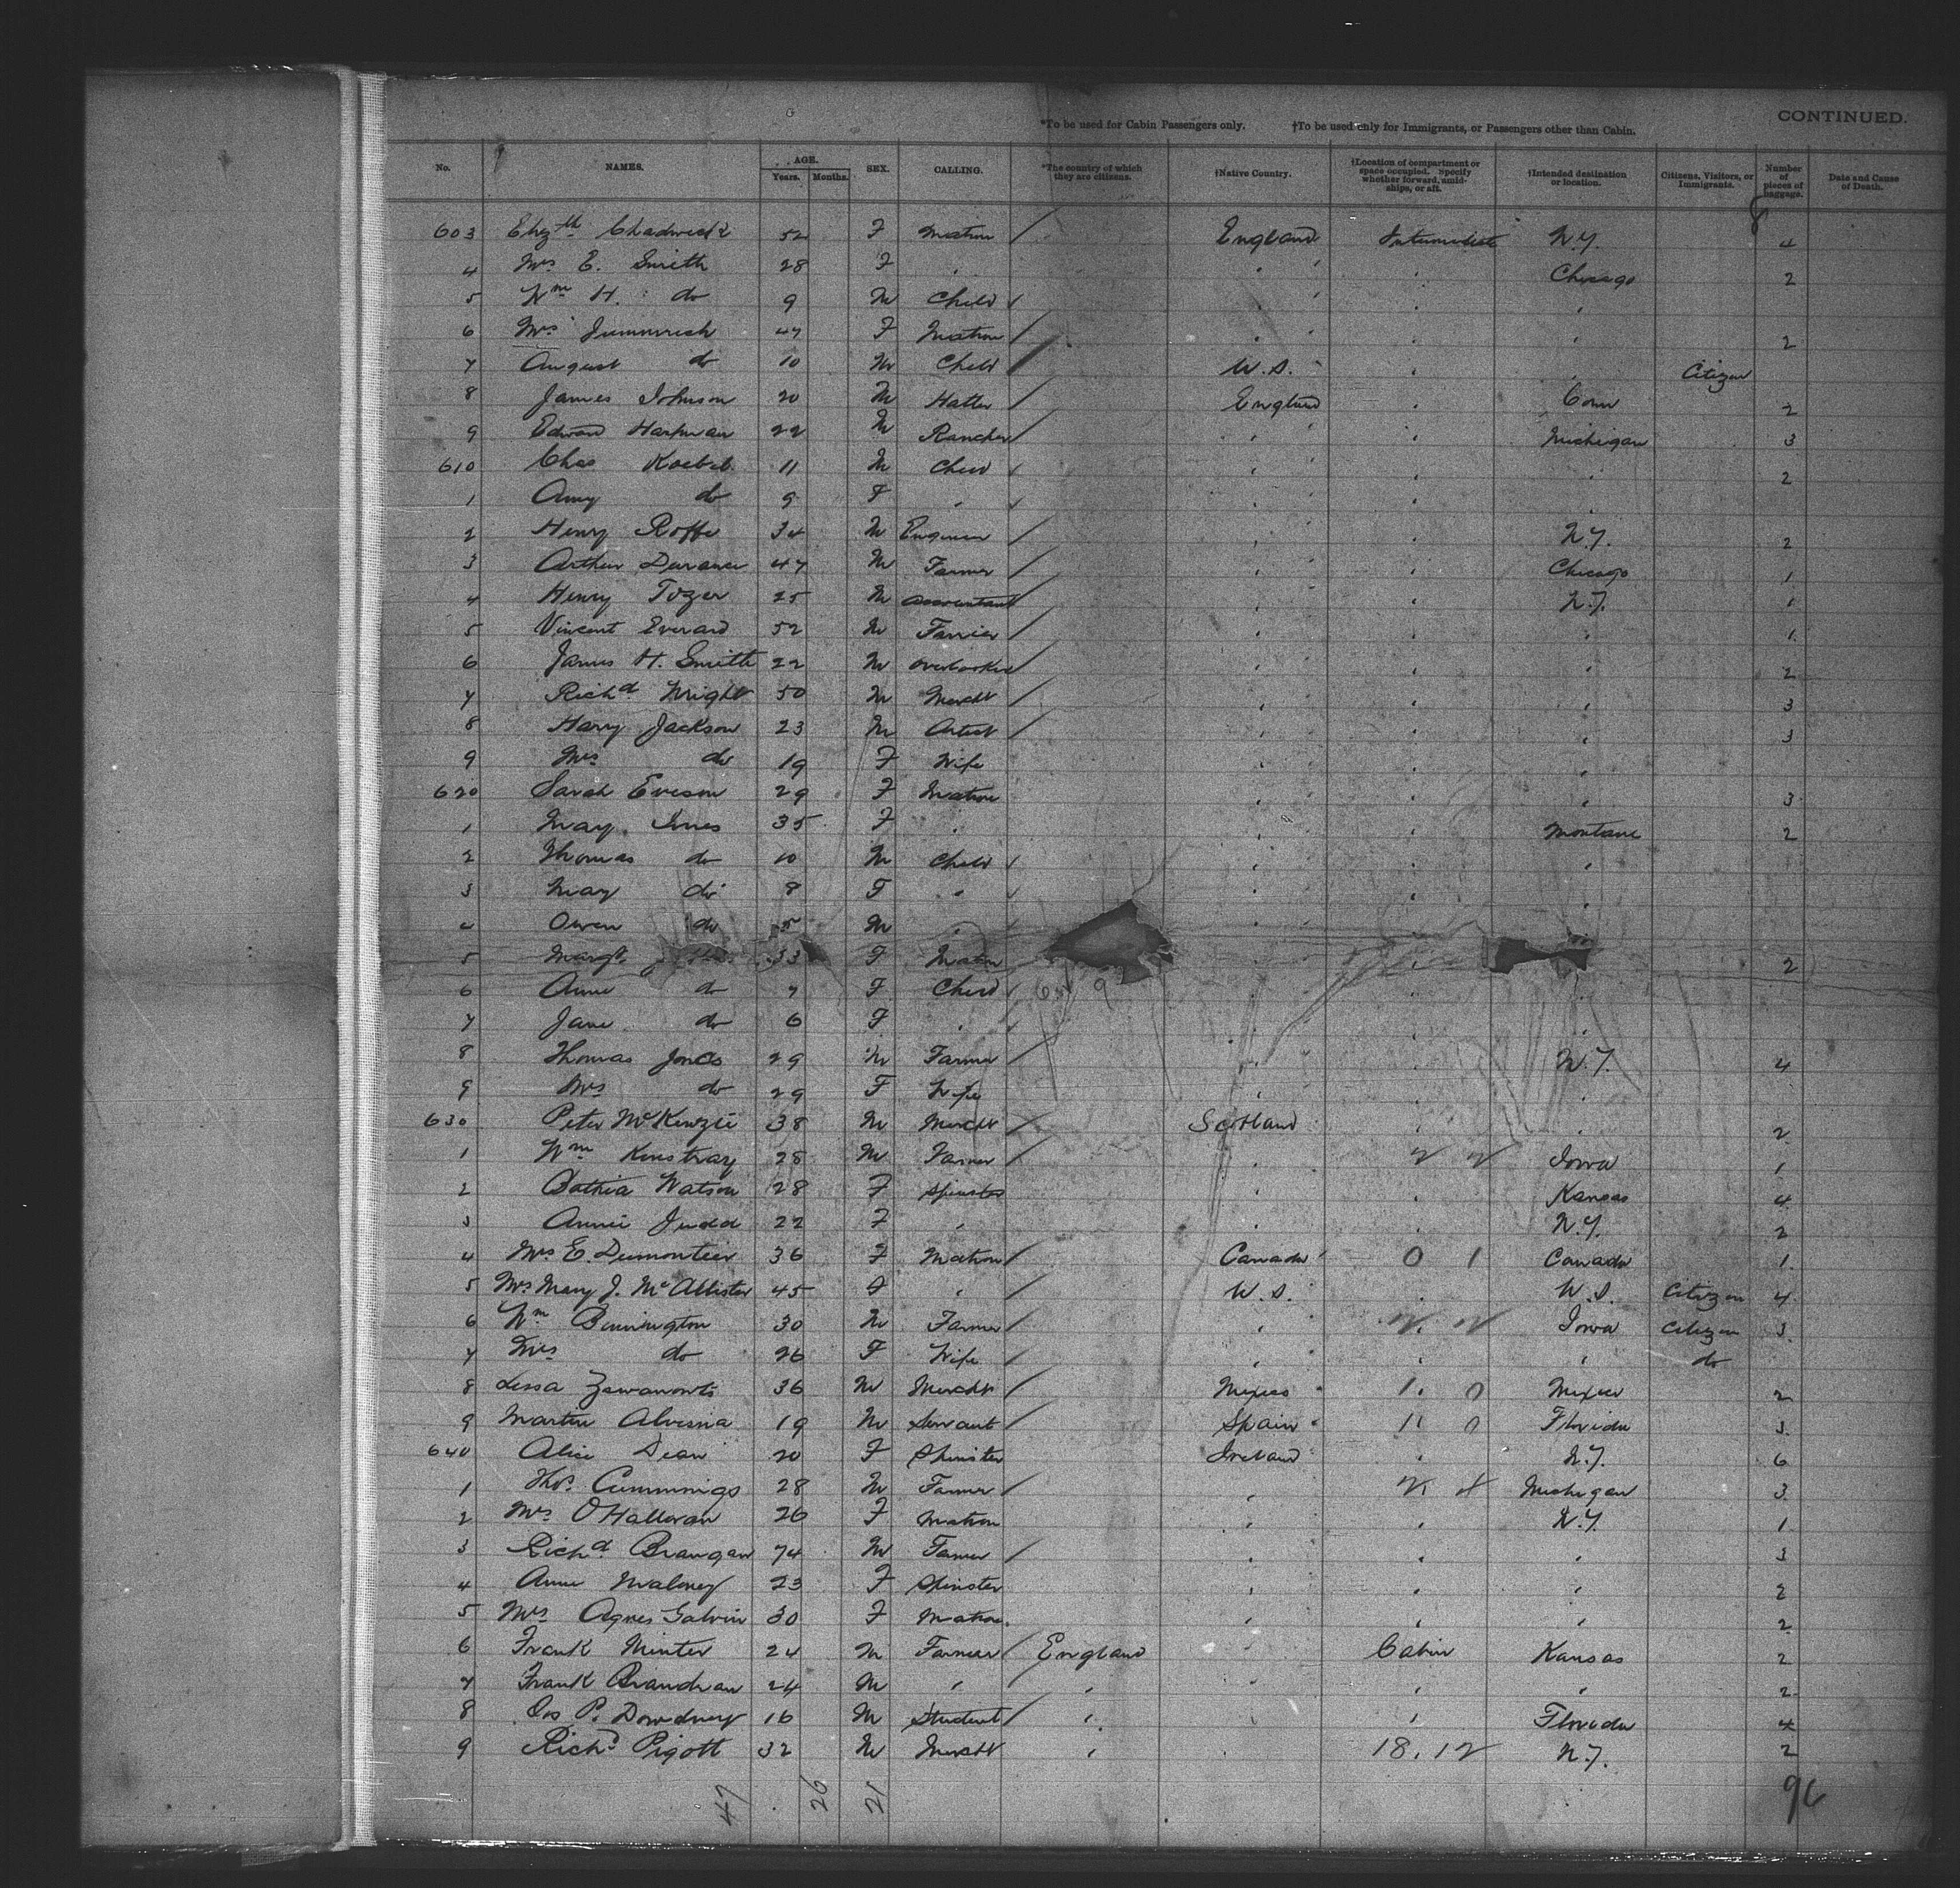 CONTINUED.
*To be used for Cabin Passengers only. †To be used only for Immigrants, or Passengers other than Cabin.
No. NAMES. AGE. Years. Months. SEX. CALLING. *The country of which they are citizens. †Native Country. †Location of compartment or space occupied. Specify whether forward, amidships, or aft. †Intended destination or location. Citizens, Visitors, or Immigrants. Number of pieces of baggage. Date and Cause of Death.
603 Elizth Chadwick 52 F Matron England Intermediate N.Y. 4
4 Mrs E. Smith 28 F " " " Chicago 2
5 Wm H. do 9 M Child " " "
6 Mrs 47 F Matron " " " 2
7 August do 10 M Child U.S. " " Citizen
8 James Johnson 20 M Hatter England " Conn 2
9 Edward Hartman 22 M Rancher " " Michigan 3
610 Chas 11 M Child " " " 2
1 Amy do 9 F " " " "
2 Henry Roffe 34 M Engineer " " N.Y. 2
3 Arthur Durance 47 M Farmer " " Chicago 1
4 Henry Tozer 25 M Accountant " " N.Y. 1
5 Vincent Everard 52 M Farrier " " " 1
6 James H. Smith 22 M Overlooker " " " 2
7 Richd Wright 50 M Mercht " " " 3
8 Harry Jackson 23 M Artist " " " 3
9 Mrs do 19 F Wife " " "
620 Sarah Eveson 29 F Matron " " " 3
1 May 35 F " " " Montana 2
2 Thomas do 10 M Child " " "
3 May do 8 F " " " "
4 Owen do 5 M " " "
5 Margt 33 F Matron " " 2
6 Annie do 7 F Child " " "
7 Jane do 6 F " " " "
8 Thomas Jones 29 M Farmer " " N.Y. 4
9 Mrs do 29 F Wife " " "
630 Peter McKenzie 38 M Mercht Scotland " " 2
1 Wm 28 M Farmer " Iowa 1
2 Bathia Watson 28 F Spinster " " Kansas 4
3 Annie Judd 22 F " " " N.Y. 2
4 Mrs E. Dumontier 36 F Matron Canada 0 1 Canada 1
5 Mrs Mary J. McAllister 45 F " U.S. " U.S. Citizen 4
6 Wm Binnington 30 M Farmer " Iowa Citizen 3
7 Mrs do 26 F Wife " " " do
8 36 M Mercht Mexico 1. 0 Mexico 2
9 Martin 19 M Servant Spain 1 0 Florida 3
640 Alice Dean 20 F Spinster Ireland " N.Y. 6
1 Thos. Cummings 28 M Farmer " Michigan 3
2 Mrs O'Halloran 26 F Matron " " N.Y. 1
3 Richd Brangan 74 M Farmer " " " 3
4 Annie Maloney 23 F Spinster " " " 2
5 Mrs Agnes Galvin 30 F Matron " " " 2
6 Frank Minter 24 M Farmer England Cabin Kansas 2
7 Frank 24 M " " " " 2
8 Jos P. Dowdney 16 M Student " " Florida 4
9 Richd Pigott 32 M Mercht " 18. 12 N.Y. 2
47 26 21 96